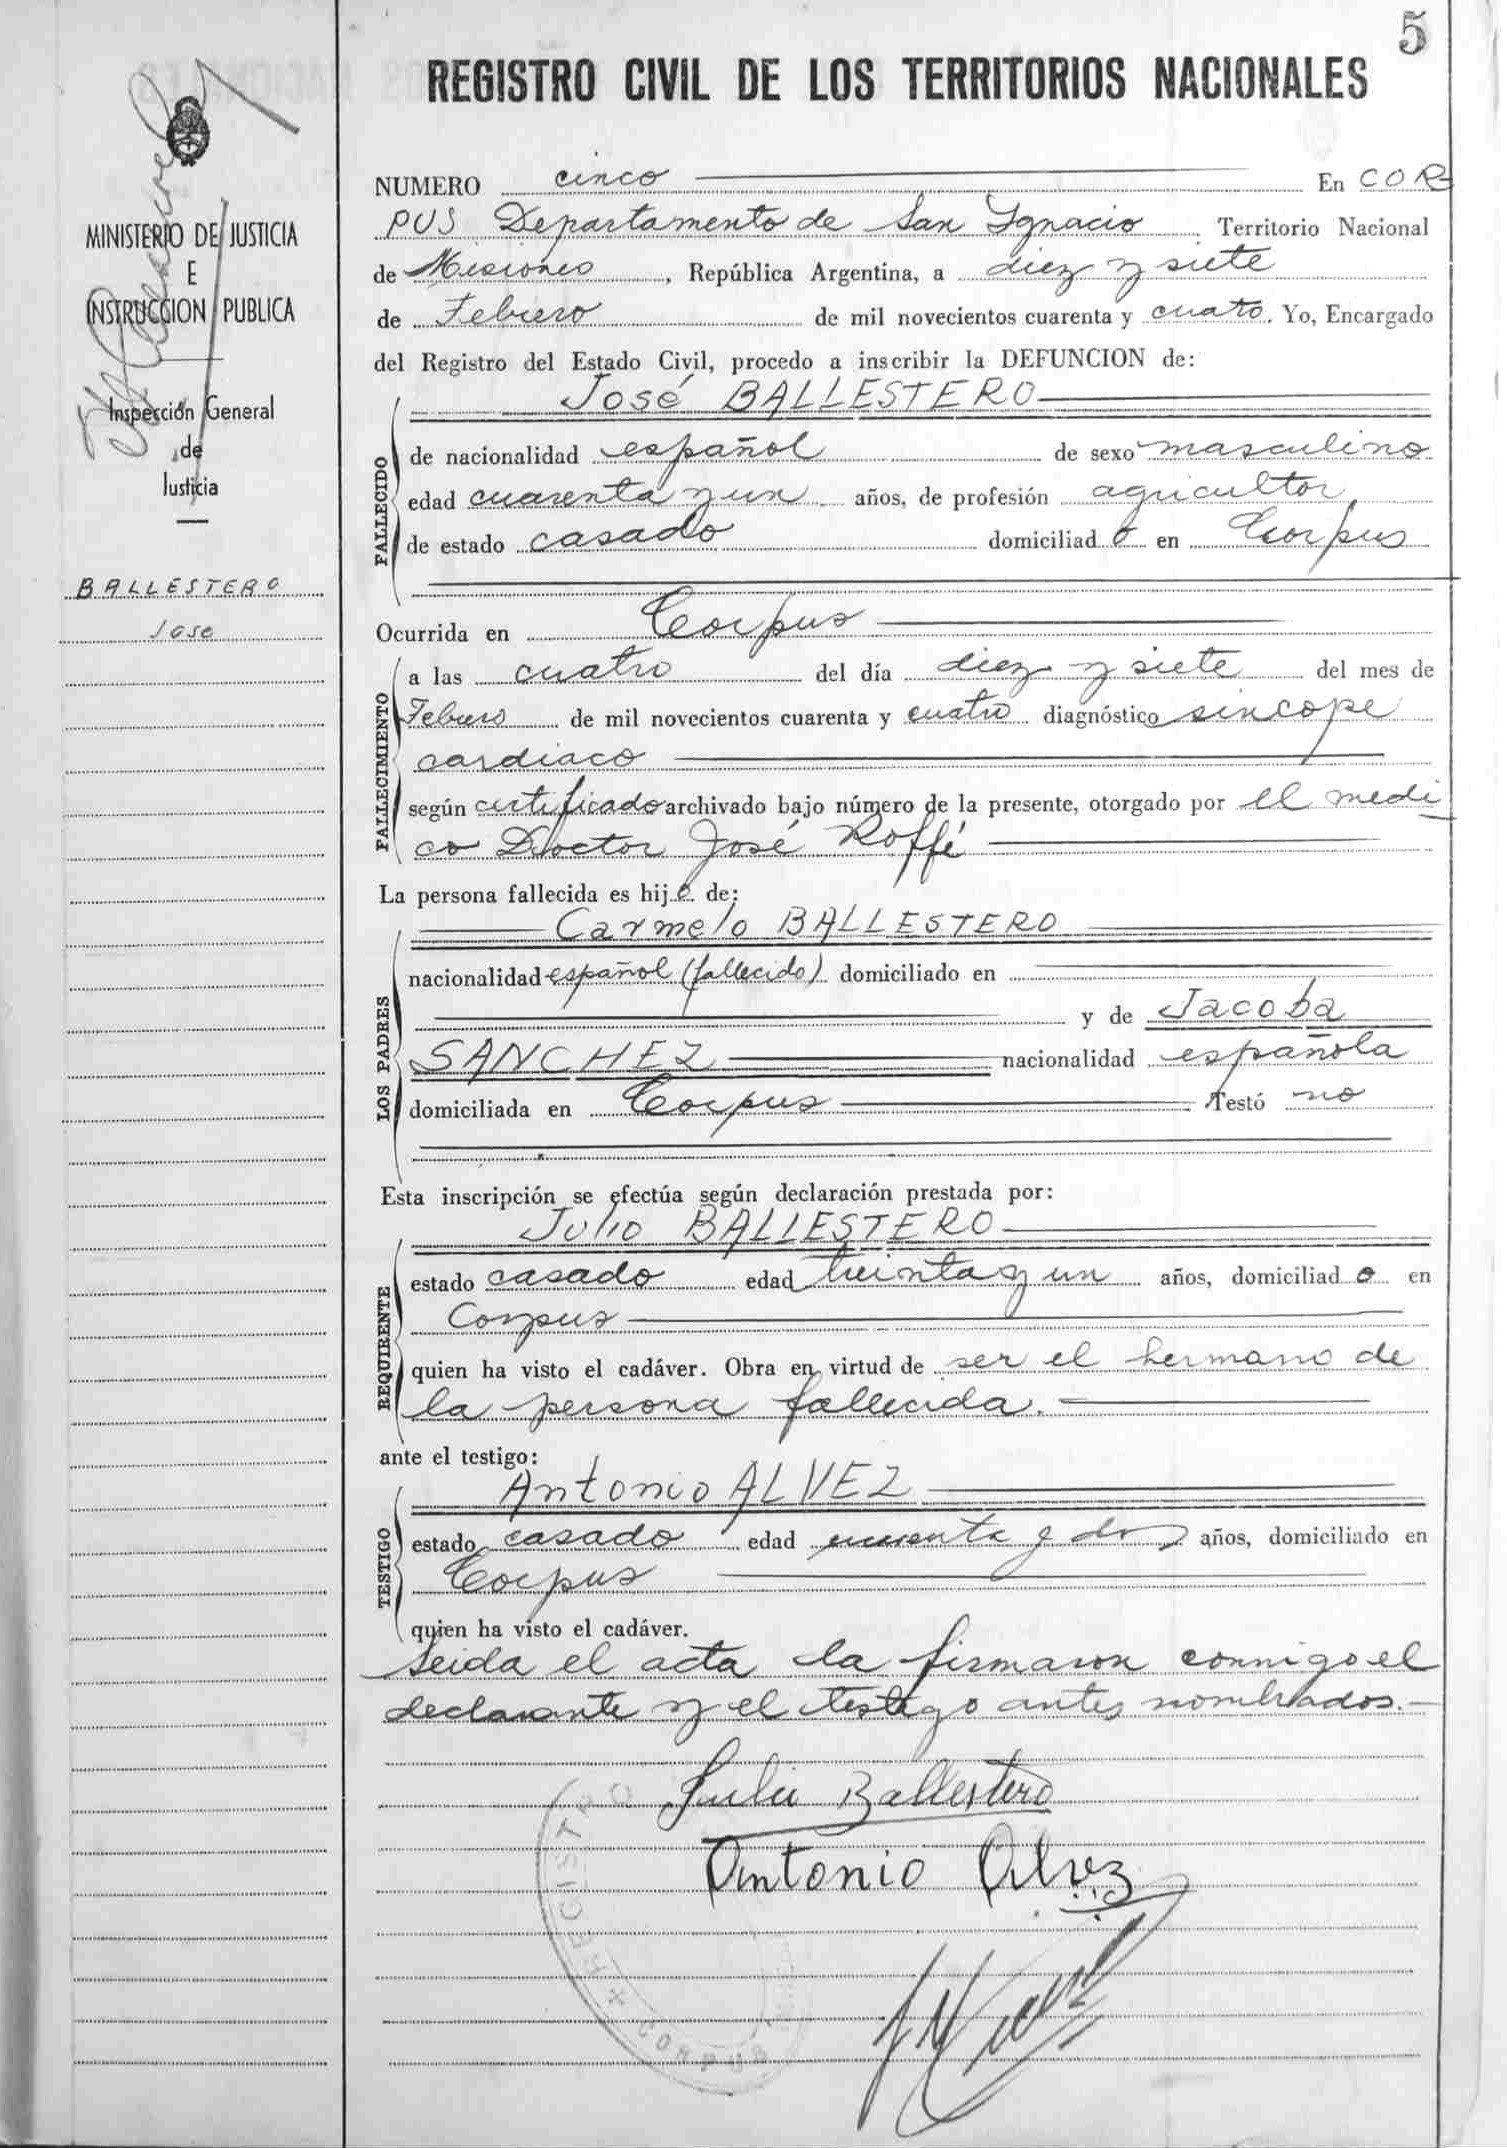 5
REGISTRO CIVIL DE LOS TERRITORIOS NACIONALES
MINISTERIO DE JUSTICIA
E
INSTRUCCION PUBLICA
Inspección General
de
Justicia
BALLESTERO
Jose
NUMERO cinco En COR
PUS Departamento de San Ignacio Territorio Nacional
de Misiones, República Argentina, a diez y siete
de Febrero de mil novecientos cuarenta y cuato. Yo, Encargado
del Registro del Estado Civil, procedo a inscribir la DEFUNCION de:
José BALLESTERO
FALLECIDO
de nacionalidad español de sexo masculino
edad cuarenta y un años, de profesión agricultor
de estado casado domiciliado en Corpus
Ocurrida en Corpus
FALLECIMIENTO
a las cuatro del día diez y siete del mes de
Febrero de mil novecientos cuarenta y cuatro diagnóstico sincope
cardiaco
según certificado archivado bajo número de la presente, otorgado por el medi
co Doctor José Roffé
La persona fallecida es hijo de:
Carmelo BALLESTERO
LOS PADRES
nacionalidad español (fallecido) domiciliado en
y de Jacoba
SANCHEZ nacionalidad española
domiciliada en Corpus Testó no
Esta inscripción se efectúa según declaración prestada por:
Julio BALLESTERO
REQUIRENTE
estado casado edad treinta y un años, domiciliado en
Corpus
quien ha visto el cadáver. Obra en virtud de ser el hermano de
la persona fallecida.
ante el testigo:
Antonio ALVEZ
TESTIGO
estado casado edad y dos años, domiciliado en
Corpus
quien ha visto el cadáver.
Leida el acta la firmaron conmigo el
declarante y el testigo antes nombrados.
Julio Ballestero
Antonio Alvez
REGISTRO
CORPUS